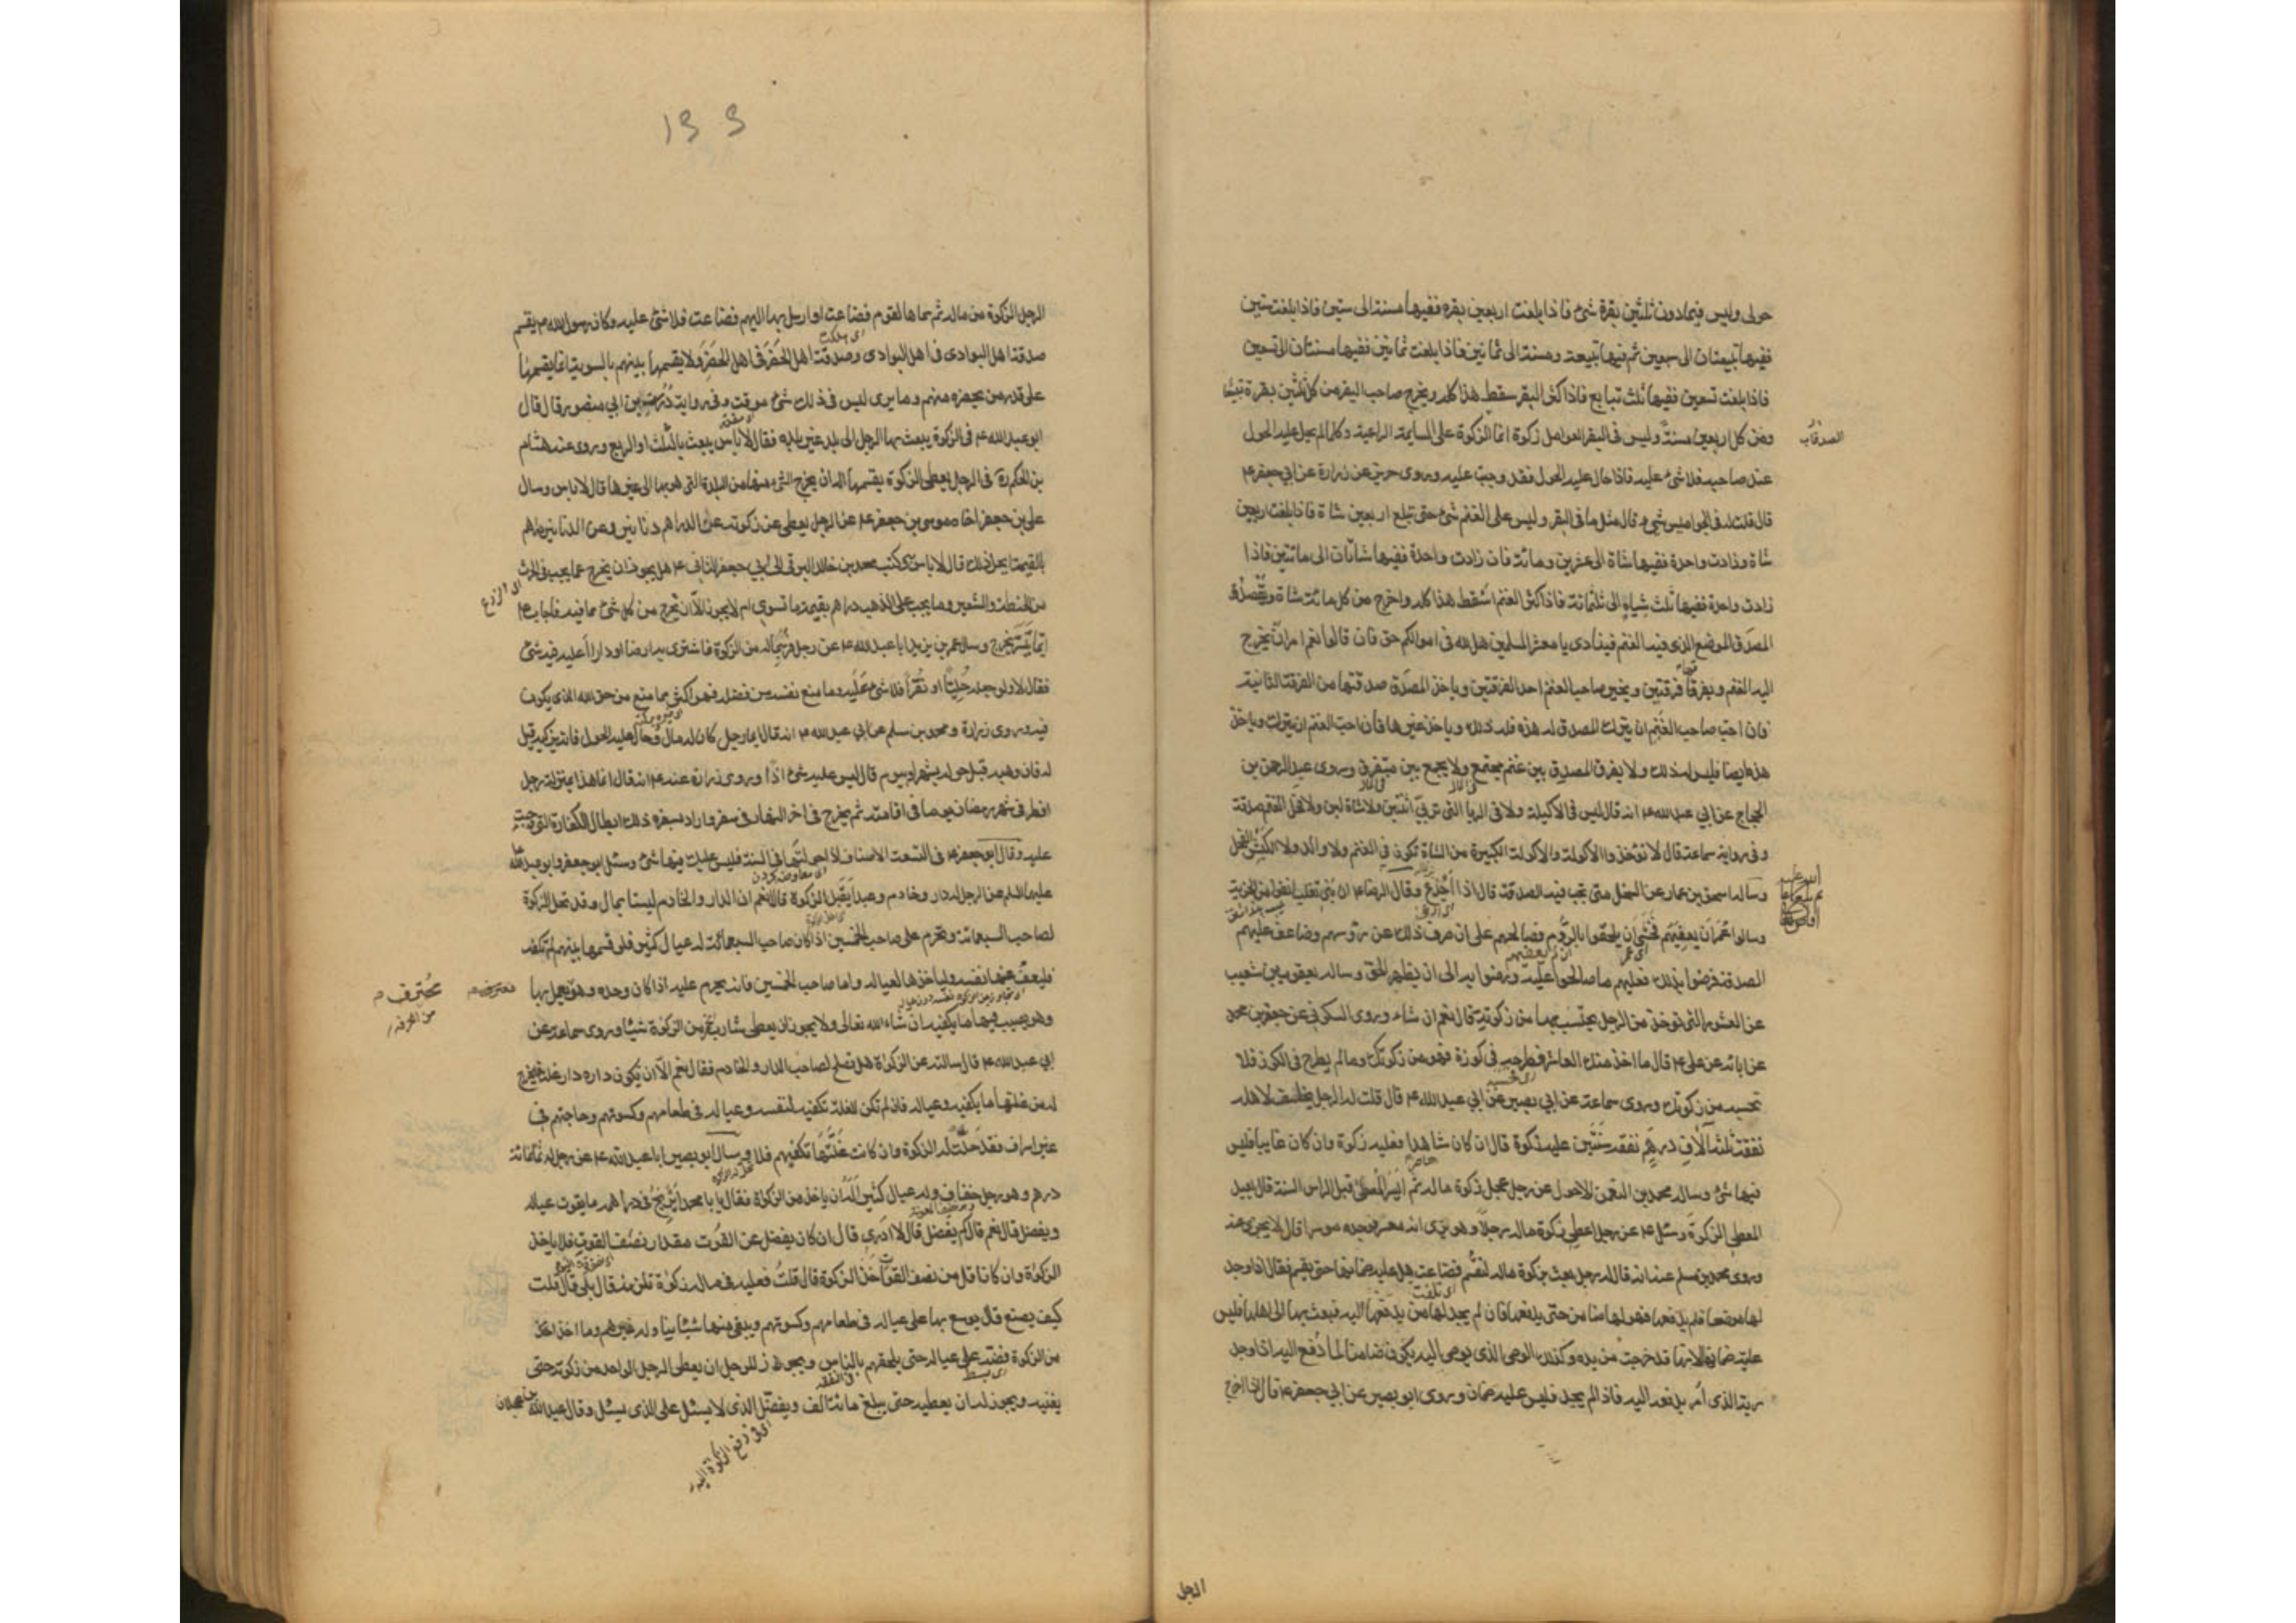 حولى وليس فيما دون ثلثين بقرة شئ فاذا بلغت اربعين بقرة ففيها مسنة الى ستين فاذا بلغت ستين
ففيها تبيعتان الى سبعين ثم فيها تبيعة ومسنة الى ثمانين فاذا بلغت ثمانين ففيها مسنتان الى تسعين
فاذا بلغت تسعين ففيها ثلث تبايع فاذا كثر البقر سقط هذا كله ويخرج صاحب البقر من كل ثلثين بقرة تبيعا
ومن كل اربعين مسنة وليس فى البقر العوامل زكوة انما الزكوة على السايمة الراعية وكلما لم يحل عليه الحول
عند صاحبه فلا شئ عليه فاذا حال عليه الحول فقد وجبت عليه وروى حريز عن زرارة عن ابي جعفر ع
قال قلت له فى الجواميس شئ قال مثل ما فى البقر وليس على الغنم شئ حتى تبلغ اربعين شاة فاذا بلغت اربعين
شاة وزادت واحدة ففيها شاة الى عشرين ومائة فان زادت واحدة ففيها شاتان الى مائتين فاذا
زادت واحدة ففيها ثلث شياه الى ثلثمائة فاذا كثر الغنم اسقط هذا كله واخرج من كل مائة شاة ويقصد
المصدق الموضع الذى فيه الغنم فينادى يا معشر المسلمين هل لله فى اموالكم حق فان قالوا نعم امر ان يخرج
اليه الغنم ويفرقها فرقتين ويخير صاحب الغنم احد الفرقتين وياخذ المصدق صدقتها من الفرقة الثانية
فان احب صاحب الغنم ان يترك المصدق له هذه فله ذلك وياخذ غيرها فان احب الغنم ان يترك وياخذ
هذه ايضا فليس له ذلك ولا يفرق المصدق بين غنم مجتمع ولا يجمع بين متفرق وروى عبد الرحمن بن
الحجاج عن ابي عبد الله ع انه قال ليس فى الاكيلة ولا فى الربا التى تربى اثنين ولا شاة لبن ولا فحل الغنم صدقة
وفى رواية سماعة قال لا تؤخذ الاكولة والاكولة الكبيرة من الشاة تكون فى الغنم ولا والد ولا الكبش الفحل
وساله اسحق بن عمار عن السخل متى تجب فيه الصدقة قال اذا اجذع وقال الرضا ع ان بنى تغلب انفوا من الجزية
وسالوا عمر ان يعفيهم فخشى ان يلحقوا بالروم فصالحهم على ان صرف ذلك عن رؤسهم وضاعف عليهم
الصدقة فرضوا بذلك فعليهم ما صالحوا عليه ورضوا به الى ان يظهر الحق وساله يعقوب بن شعيب
عن العشور التى تؤخذ من الرجل يحتسب بها من زكوته قال نعم ان شاء وروى السكونى عن جعفر بن محمد
عن ابائه عن على ع قال ما اخذ منك العاشر فطرحه فى كوزة فهو من زكوتك وما لم يطرح فى الكوز فلا
تحسبه من زكوتك وروى سماعة عن ابي بصير عن ابي عبد الله ع قال قلت له الرجل يخلف لاهله
نفقة ثلثة الاف درهم نفقة سنتين عليه زكوة قال ان كان شاهدا فعليه زكوة وان كان غايبا فليس
فيها شئ وساله محمد بن النعمن الاحول عن رجل عجل زكوة ماله ثم ايسر المعطى قبل راس السنة قال يعيد
المعطى الزكوة وسئل ع عن رجل اعطى زكوة ماله رجلا وهو يرى انه معسر فوجده موسرا قال لا يجزى عنه
وروى محمد بن مسلم عنه انه قال له رجل بعث بزكوة ماله لتقسم فضاعت هل عليه ضمانها حتى يقسم فقال اذا وجد
لها موضعا فلم يدفعها فهو لها ضامن حتى يدفعها فان لم يجد لها من يدفعها اليه فبعث بها الى اهلها فليس
عليه ضمان لانها قد خرجت من يده وكذلك الوصى الذى يوصى اليه يكون ضامنا لما دفع اليه اذا وجد
ربه الذى امر بدفعه اليه فاذا لم يجد فليس عليه ضمان وروى ابو بصير عن ابي جعفر ع قال اذا اخرج
الرجل
133
الرجل الزكوة من ماله ثم سماها لقوم فضاعت او ارسل بها اليهم فضاعت فلا شئ عليه وكان رسول الله ص يقسم
صدقة اهل البوادى فى اهل البوادى وصدقة اهل الحضر فى اهل الحضر ولا يقسمها بينهم بالسوية انما يقسمها
على قدر من يحضره منهم وما يرى ليس فى ذلك شئ موقت وفى رواية درست بن ابي منصور قال قال
ابو عبد الله ع فى الزكوة يبعث بها الرجل الى بلد غير بلده فقال لا باس يبعث بالثلث او الربع وروى عنه هشام
بن الحكم فى الرجل يعطى الزكوة يقسمها اله ان يخرج الشئ منها من البلدة التى هو بها الى غيرها قال لا باس وسال
على بن جعفر اخاه موسى بن جعفر ع عن الرجل يعطى عن زكوته عن الدراهم دنانير وعن الدنانير دراهم
بالقيمة ايحل ذلك قال لا باس به وكتب محمد بن خالد البرقى الى ابي جعفر الثانى ع هل يجوز ان يخرج عما يجب فى الحرث
من الحنطة والشعير وما يجب على الذهب دراهم بقيمة ما تسوى ام لا يجوز الا ان يخرج من كل شئ ما فيه فاجاب ع
ايما تيسر يخرج وسال عمر بن يزيد ابا عبد الله ع عن رجل فر بماله من الزكوة فاشترى به ارضا او دارا اعليه فيه شئ
فقال لا ولو جعله حليا او نقرا فلا شئ عليه وما منع نفسه من فضله فهو اكثر مما منع من حق الله الذى يكون
فيه وروى زرارة ومحمد بن مسلم عن ابي عبد الله ع انه قال ايما رجل كان له مال وحال عليه الحول فانه يزكيه قيل
له فان وهبه قبل حوله بشهر او بيوم قال ليس عليه شئ اذا وروى زرارة عنه ع انه قال انما هذا بمنزلة رجل
افطر فى شهر رمضان يوما فى اقامته ثم يخرج فى اخر النهار فى سفر واراد بسفره ذلك ابطال الكفارة التى وجبت
عليه وقال ابو جعفر ع فى التسعة الاصناف اذا حولتها فى السنة فليس عليك فيها شئ وسئل ابو جعفر وابو عبد الله
عليهما السلم عن الرجل له دار وخادم وعبد ايقبل الزكوة قالا نعم ان الدار والخادم ليستا بمال وقد تحل الزكوة
لصاحب السبعمائة وتحرم على صاحب الخمسين اذا كان صاحب السبعمائة له عيال كثير فلو قسمها بينهم لم تكفه
فليعف عنها نفسه ولياخذها لعياله واما صاحب الخمسين فانه يحرم عليه اذا كان وحده وهو يعمل بها
وهو يصيب فيها ما يكفيه ان شاء الله تعالى ولا يجوز ان يعطى شارب خمر من الزكوة شيئا وروى سماعة عن
ابي عبد الله ع قال سالته عن الزكوة هل تصلح لصاحب الدار والخادم فقال نعم الا ان تكون داره دار غلة فيخرج
له من غلتها ما يكفيه وعياله فان لم تكن الغلة تكفيه لنفسه وعياله فى طعامهم وكسوتهم وحاجتهم فى
غير اسراف فقد حلت له الزكوة وان كانت غلتها تكفيهم فلا وسال ابو بصير ابا عبد الله ع عن رجل له ثمانمائة
درهم وهو رجل خفاف وله عيال كثير اله ان ياخذ من الزكوة فقال يا با محمد ايربح فى دراهمه ما يقوت عياله
ويفضل قال نعم قال كم يفضل قال لا ادرى قال ان كان يفضل عن القوت مقدار نصف القوت فلا ياخذ
الزكوة وان كان اقل من نصف القوت اخذ الزكوة قال قلت فعليه فى ماله زكوة تلزمه قال بلى قال قلت
كيف يصنع قال يوسع بها على عياله فى طعامهم وكسوتهم ويبقى منها شيئا يناوله غيرهم وما اخذ
من الزكوة فضه على عياله حتى يلحقهم بالناس ويجوز للرجل ان يعطى الرجل الواحد من زكوته حتى
يغنيه ويجوز له ان يعطيه حتى يبلغ مائة الف ويفضل الذى لا يسئل على الذى يسئل وقال عبد الله بن عجلان
محترف
من الحرفة
اى فى دفع الزكوة اليه